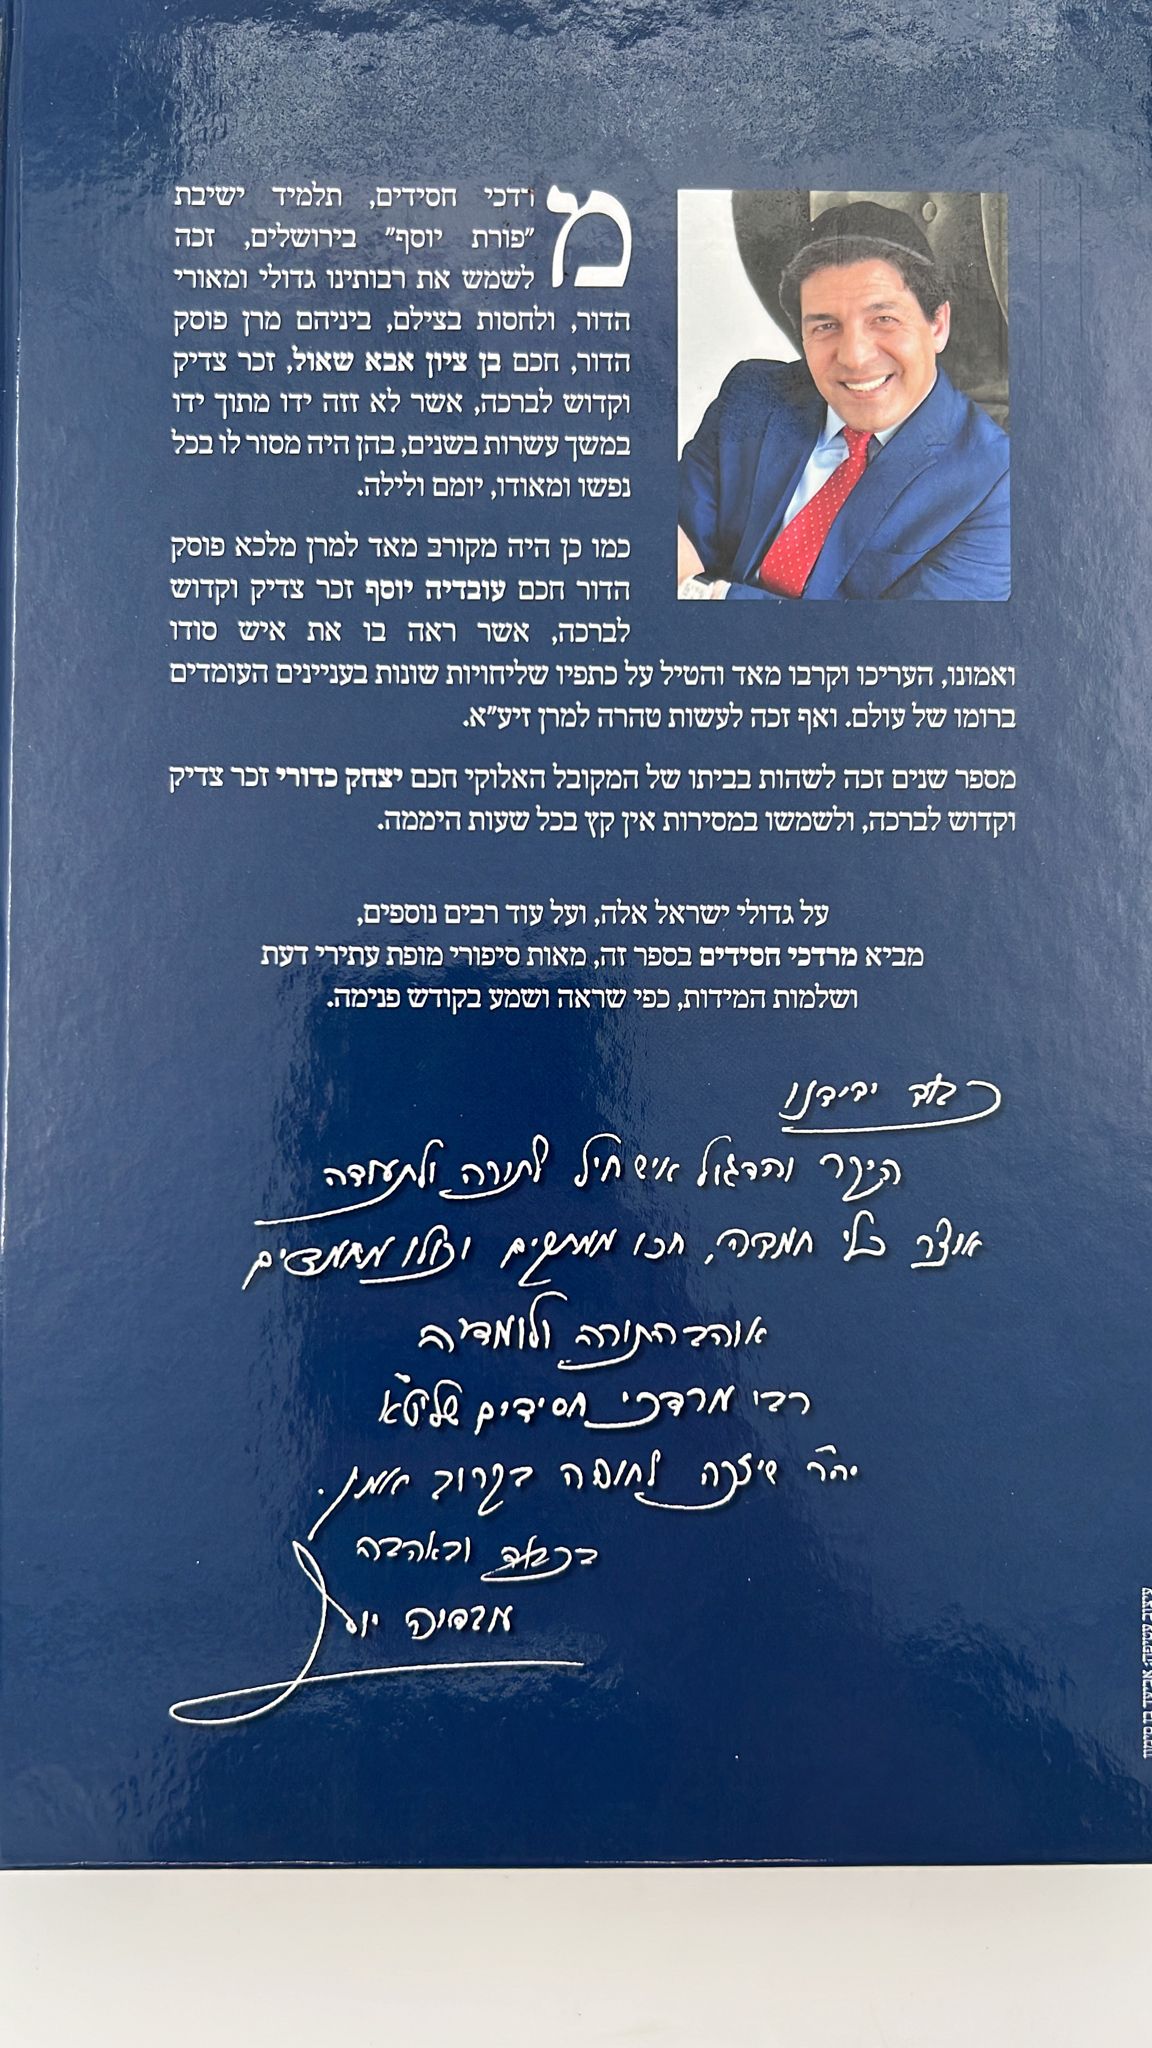 מרדכי חסידים, תלמיד ישיבת
"פורת יוסף" בירושלים, זכה
לשמש את רבותינו גדולי ומאורי
הדור, ולחסות בצילם, ביניהם מרן פוסק
הדור, חכם בן ציון אבא שאול, זכר צדיק
וקדוש לברכה, אשר לא זזה ידו מתוך ידו
במשך עשרות בשנים, בהן היה מסור לו בכל
נפשו ומאודו, יומם ולילה.
כמו כן היה מקורב מאד למרן מלכא פוסק
הדור חכם עובדיה יוסף זכר צדיק וקדוש
לברכה, אשר ראה בו את איש סודו
ואמונו, העריכו וקרבו מאד והטיל על כתפיו שליחויות שונות בעניינים העומדים
ברומו של עולם. ואף זכה לעשות טהרה למרן זיע"א.
מספר שנים זכה לשהות בביתו של המקובל האלוקי חכם יצחק כדורי זכר צדיק
וקדוש לברכה, ולשמשו במסירות אין קץ בכל שעות היממה.
על גדולי ישראל אלה, ועל עוד רבים נוספים,
מביא מרדכי חסידים בספר זה, מאות סיפורי מופת עתירי דעת
ושלמות המידות, כפי שראה ושמע בקודש פנימה.
כבוד ידידנו
היקר והדגול איש חיל לתורה ולתעודה
אוצר כלי חמדה, חכו ממתקים וכולו מחמדים
אוהב התורה ולומדיה
רבי מרדכי חסידים שליט"א
יה"ר שיזכה לחופה בקרוב אמן.
בכבוד ובאהבה
עובדיה יוסף
עיצוב עטיפה: אביעד בן סימון